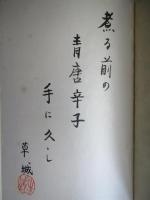 煮る前の
青唐辛子
手に久し
草城